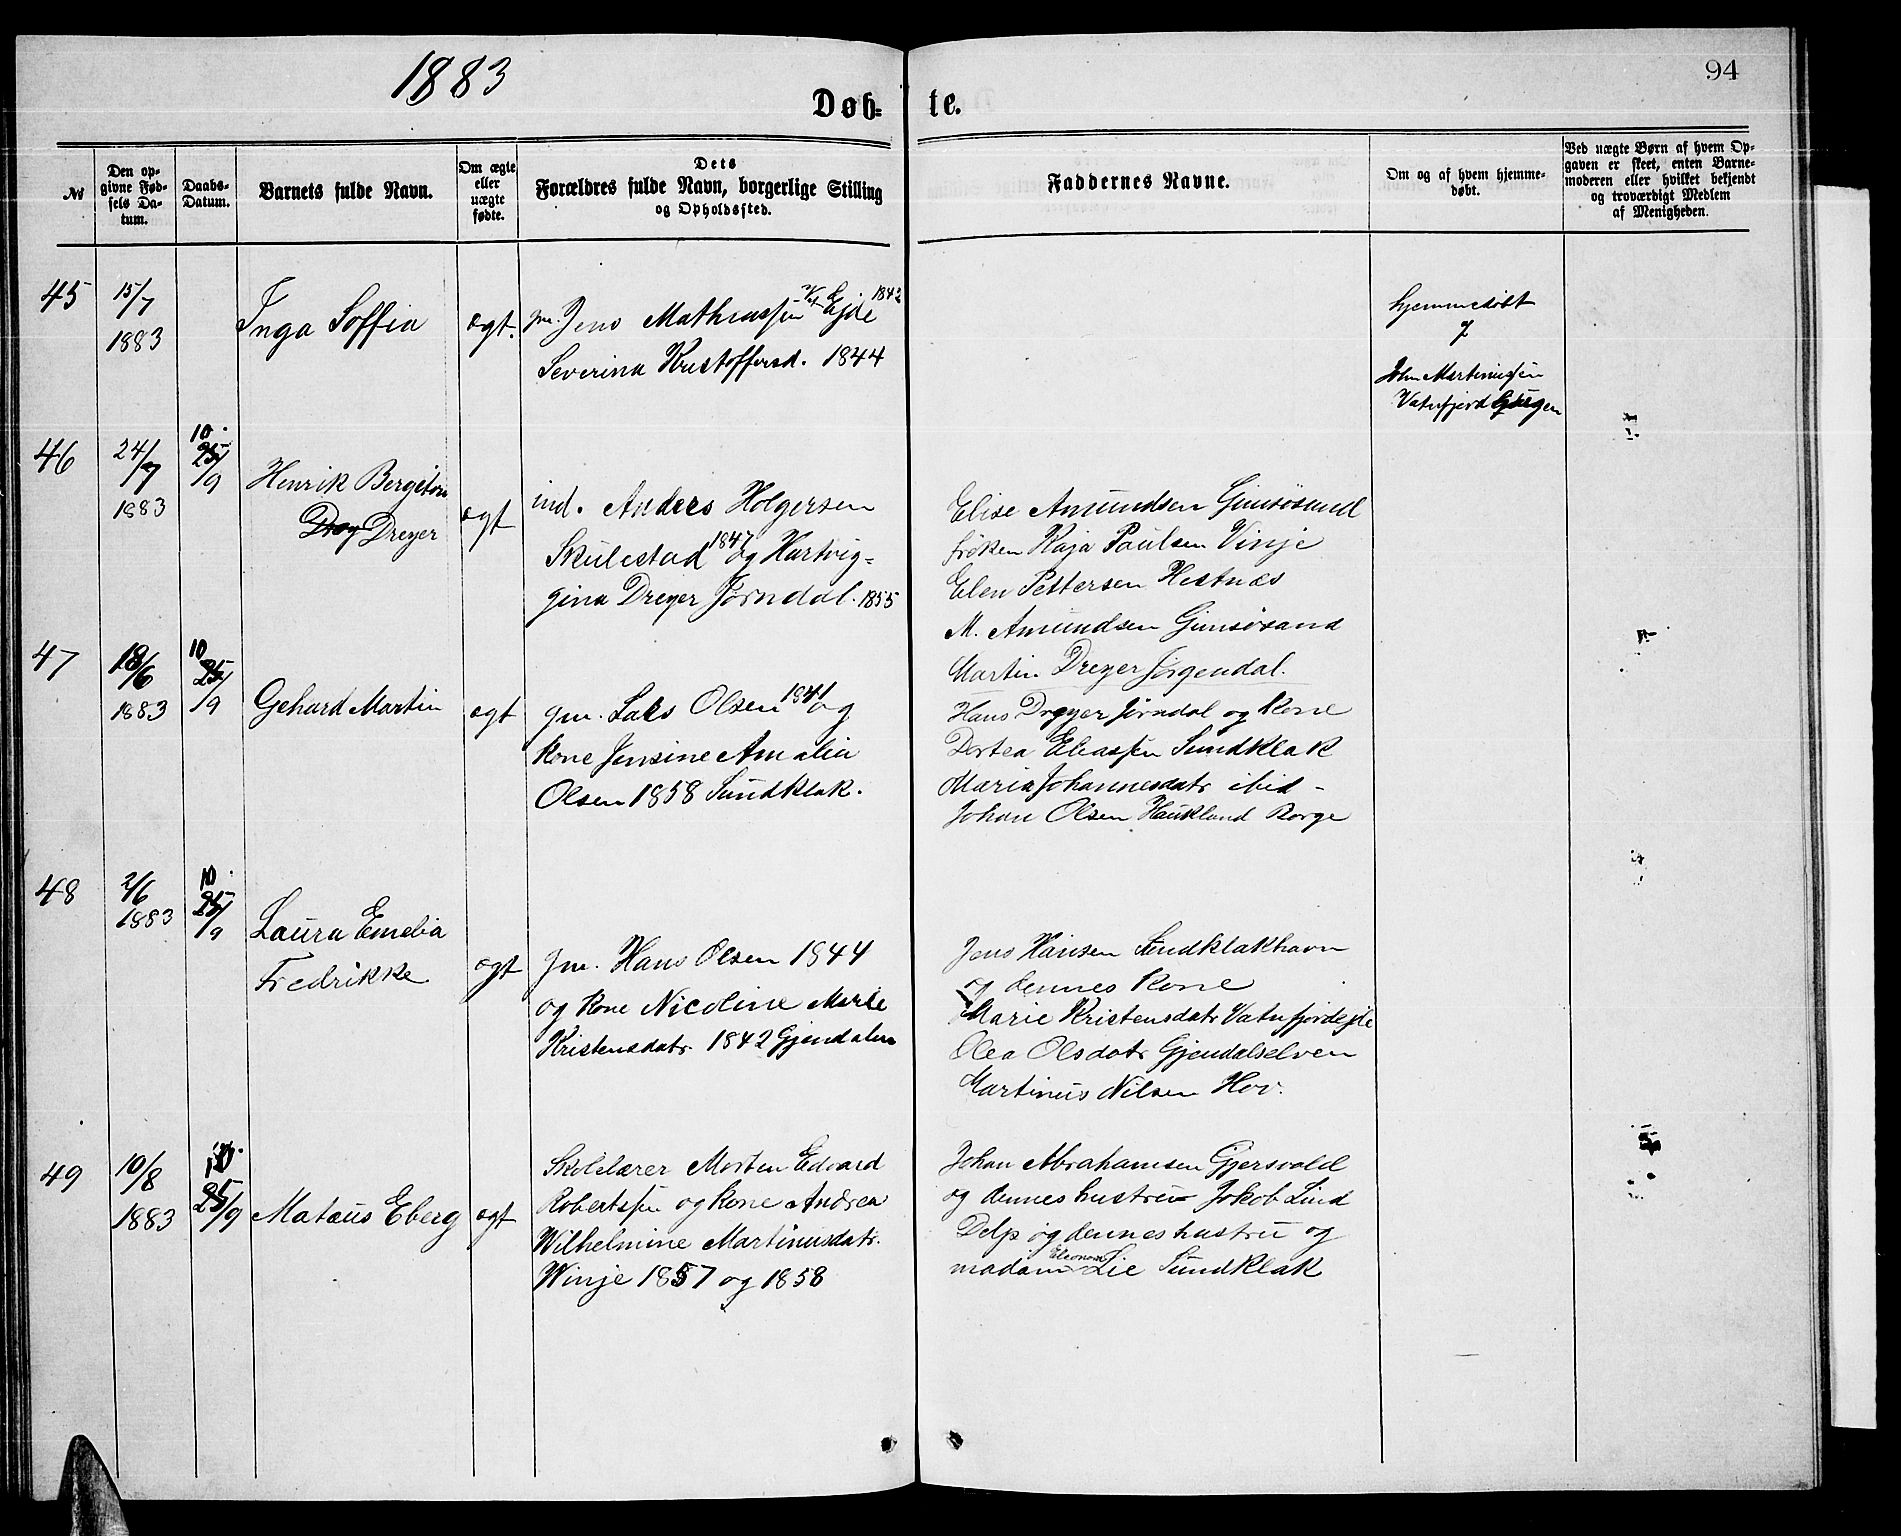 1883
94
Døb- te.
№
Den opgivne Fødsels Datum.
Daabs-Datum.
Barnets fulde Navn.
Om ægte eller uægte fødte.
Dets
Forældres fulde Navn, borgerlige Stilling
og Opholdssted.
Faddernes Navne.
Om og af hvem hjemmedøbt.
Ved uægte Børn af hvem Opgaven er skeet, enten Barnemoderen eller hvilket bekjendt og troværdigt Medlem af Menigheden.
45
15/7
1883
Inga Soffia
ægt.
gm. Jens Mathiassen Ejde 1842
Severina Kristoffersd. 1844
hjemmedøbt
John Martinussen
Vatnfjord
46
24/7
1883
10.
25/9
Henrik Bergiton
Drey Dreyer
ægt
ind. Anders Holgersen
Skulestad 1847 og Hartvig-
gina Dreyer Jørndal. 1855
Elise Amundsen Gimsøsand
frøken Kaja Paulsen Vinje
Elen Pettersen Hestnæs
M. Amundsen Gimsøsand
Martin Dreyer Jørgendal.
47
18/6
1883
10
25/9
Gehard Martin
ægt
gm. Lars Olsen 1841 og
kone Jensine Amalia
Olsen 1858 Sundklak.
Hans Dreyer Jørndal og kone
Dortea Eliassen Sundklak
Maria Johannesdatr ibid -
Johan Olsen Haukland Borge
48
2/6
1883
10.
25/9
Laura Emelia
Fredrikke
ægt
gm. Hans Olsen 1844
og kone Nicoline Marie
Kristensdatr 1842 Gjendalen
Jens Hansen Sundklakhavn
og dennes kone
Marie Kristensdatr Vatnfjordejde
Olea Olsdatr Gjendalselven
Martinus Nilsen Hov.
49
10/8
1883
10.
25/9
Matæus Eberg
ægt
Skolelærer Morten Edvard
Robertsen og kone Andrea
Wilhelmine Martinusdatr.
Winje 1857 og 1858
Johan Abrahamsen Gjersvold
og dennes hustru Jakob Lind
Delp og dennes hustru og
madam Eleonora Lie Sundklak